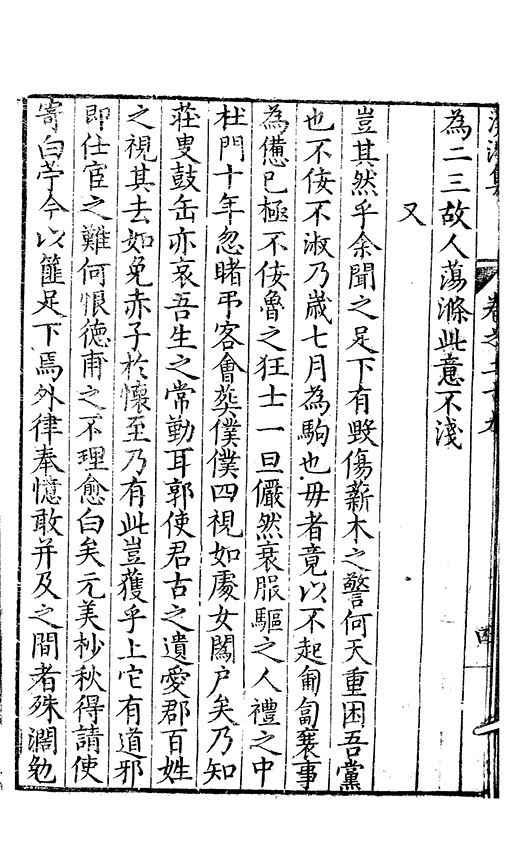 為二三故人蕩滌此意不淺
又
豈其然乎余聞之足下有毀傷薪木之警何天重困吾黨
也不佞不淑乃歲七月為駒也毋者竟以不起匍匐襄事
為憊已極不佞魯之狂士一旦儼然衰服驅之人禮之中
杜門十年忽睹弔客會葬僕僕四視如處女闔户矣乃知
莊叟鼓缶亦哀吾生之常勤耳郭使君古之遺愛郡百姓
之視其去如免赤子於懷至乃有此豈獲乎上它有道邪
即仕宦之難何恨德甫之不理愈白矣元美杪秋得請使
寄白苧今以篚足下焉外律奉憶敢并及之間者殊濶勉